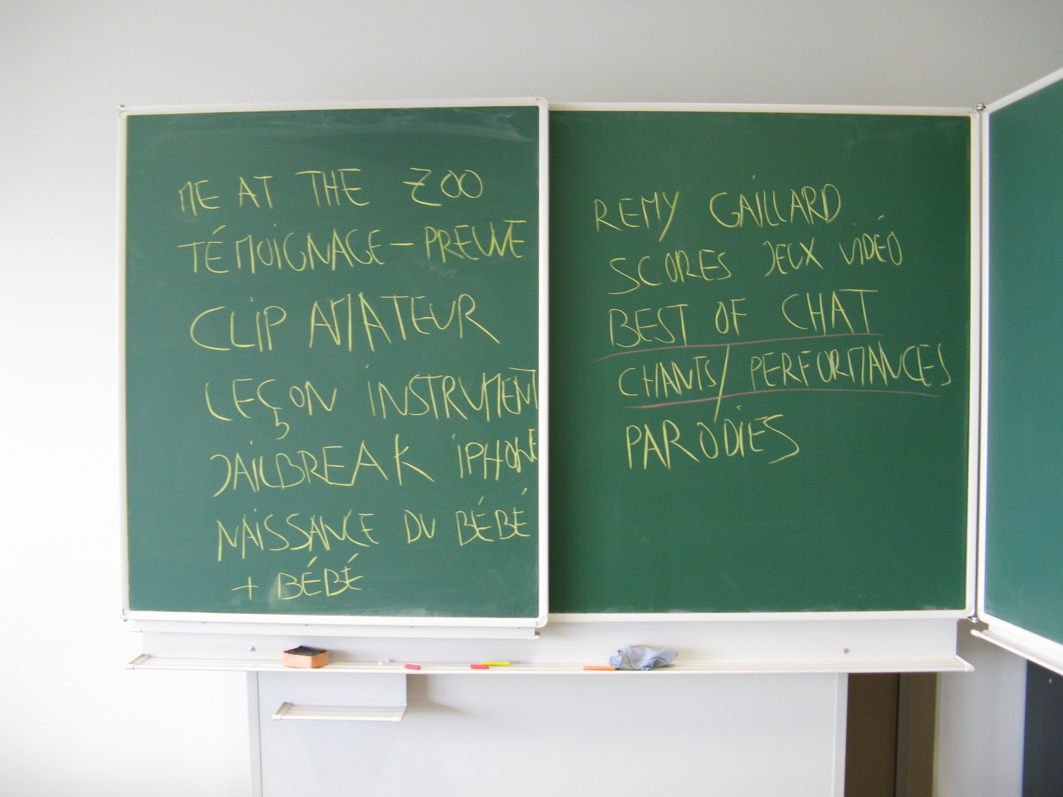 ME AT THE ZOO
TÉMOIGNAGE - PREUVE
CLIP AMATEUR
LEÇON INSTRUMENT
JAILBREAK IPHONE
NAISSANCE DU BÉBÉ
+ BÉBÉ
REMY GAILLARD
SCORES JEUX VIDÉO
BEST OF CHAT
CHANTS/ PERFORMANCES
PARODIES